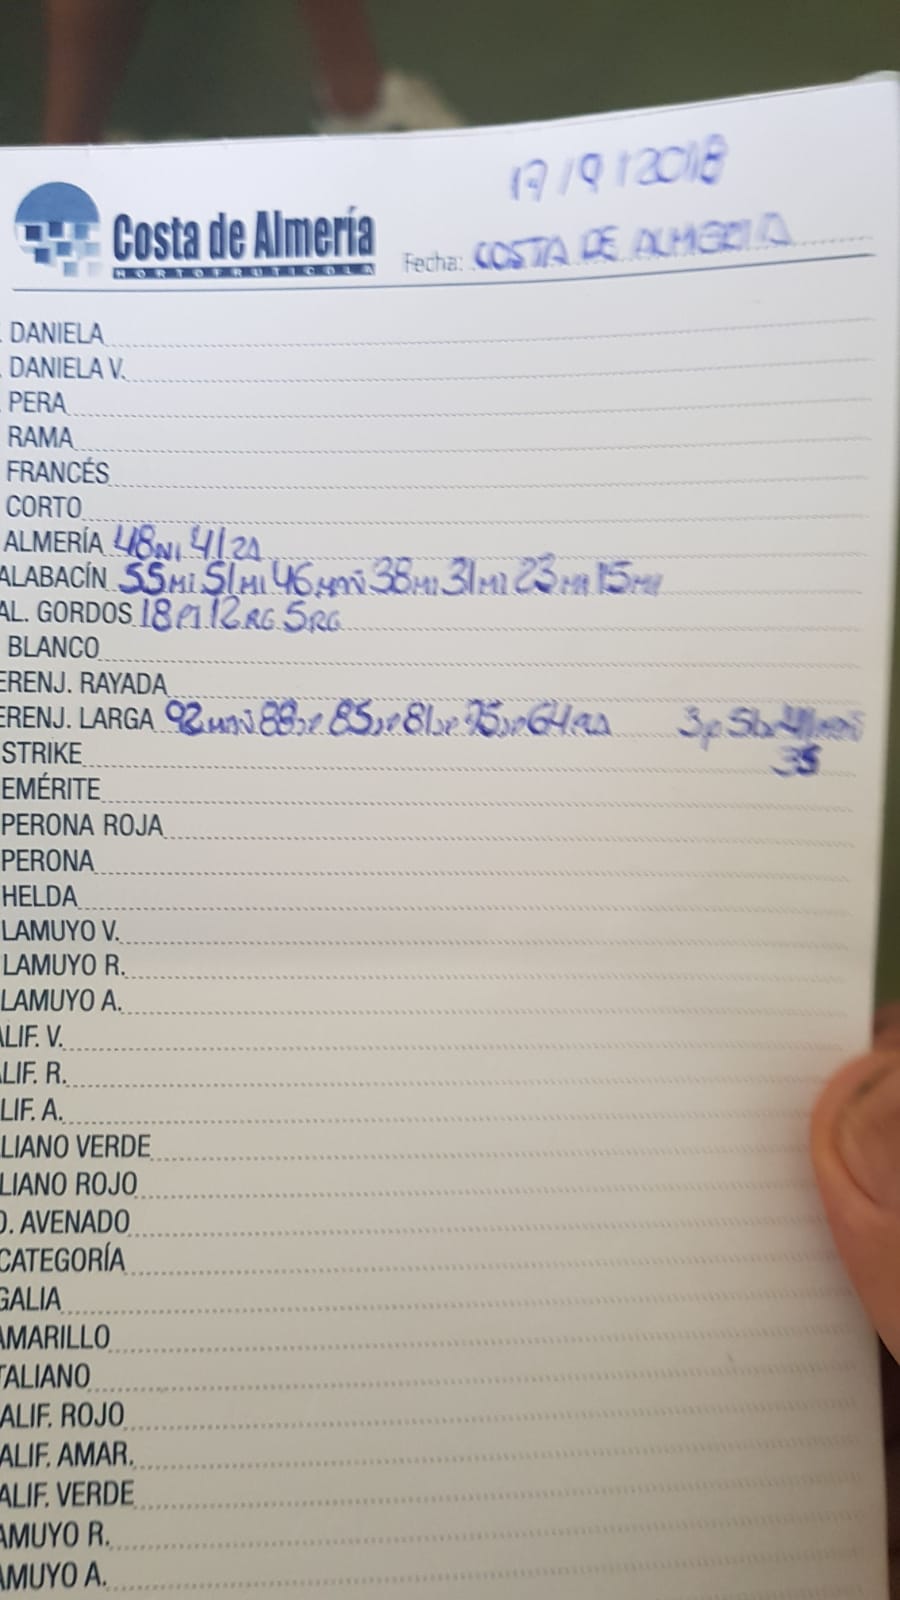 17/9/2018
Costa de Almería
HORTOFRUTICOLA
Fecha: COSTA DE ALMERIA
DANIELA
DANIELA V.
PERA
RAMA
FRANCÉS
CORTO
ALMERÍA 48NI 41ZA
ALABACÍN 55MI 51MI 46MAÑ 38MI 31MI 23 15
AL. GORDOS 18 12RG 5RG
BLANCO
ERENJ. RAYADA
ERENJ. LARGA 92MAÑ 88 85 81 75 64 3p 5
STRIKE 35
EMÉRITE
PERONA ROJA
PERONA
HELDA
LAMUYO V.
LAMUYO R.
LAMUYO A.
ALIF. V.
LIF. R.
LIF. A.
LIANO VERDE
LIANO ROJO
O. AVENADO
CATEGORÍA
GALIA
AMARILLO
TALIANO
ALIF. ROJO
ALIF. AMAR.
ALIF. VERDE
AMUYO R.
AMUYO A.